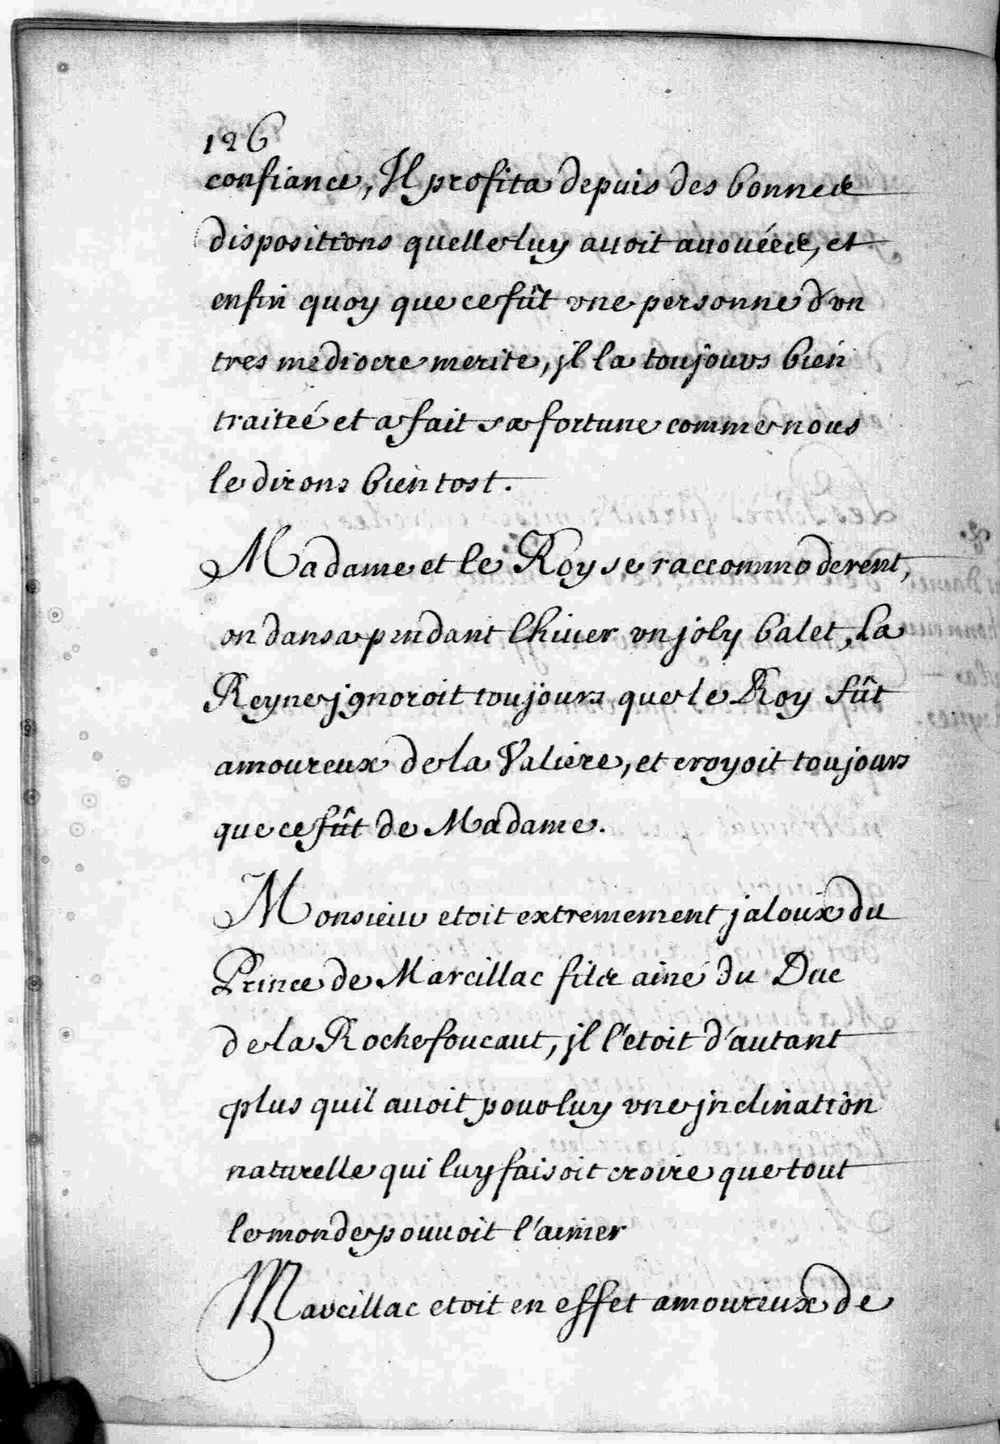 126
confiance, Il profita depuis des bonnes
dispositions quelle luy auoit auouées, et
enfin quoy que ce fût vne personne d'vn
tres mediocre merite, jl la toujours bien
traiteé et a fait sa fortune comme nous
le dirons bien tost.
Madame et le Roy se raccommoderent,
on dansa pendant lhiuer vn joly balet, La
Reyne jgnoroit toujours que le Roy fût
amoureux de la Valiere, et croyoit toujours
que ce fût de Madame.
Monsieur etoit extremement jaloux du
Prince de Marcillac fils ainé du Duc
de la Rochefoucaut, jl l'etoit d'autant
plus quil auoit pour luy vne jnclination
naturelle qui luy faisoit croire que tout
le monde pouuoit l'aimer
Marcillac etoit en effet amoureux de